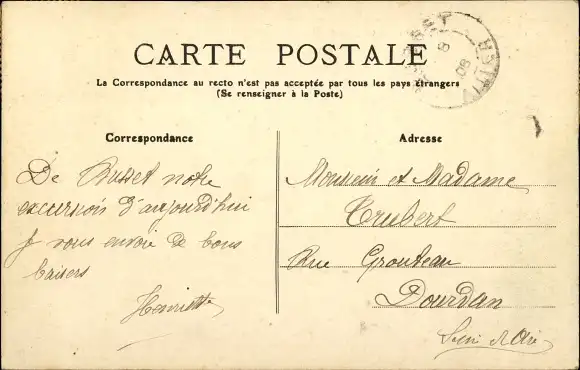 CARTE POSTALE
La Correspondance au recto n'est pas acceptée par tous les pays étrangers
(Se renseigner à la Poste)
Correspondance
De Busset notre
excursion d'aujourd'hui
je vous envoie de bons
baisers
Henriette
Adresse
Monsieur et Madame
Trubert
Rue Grouteau
Dourdan
Seine et Oise